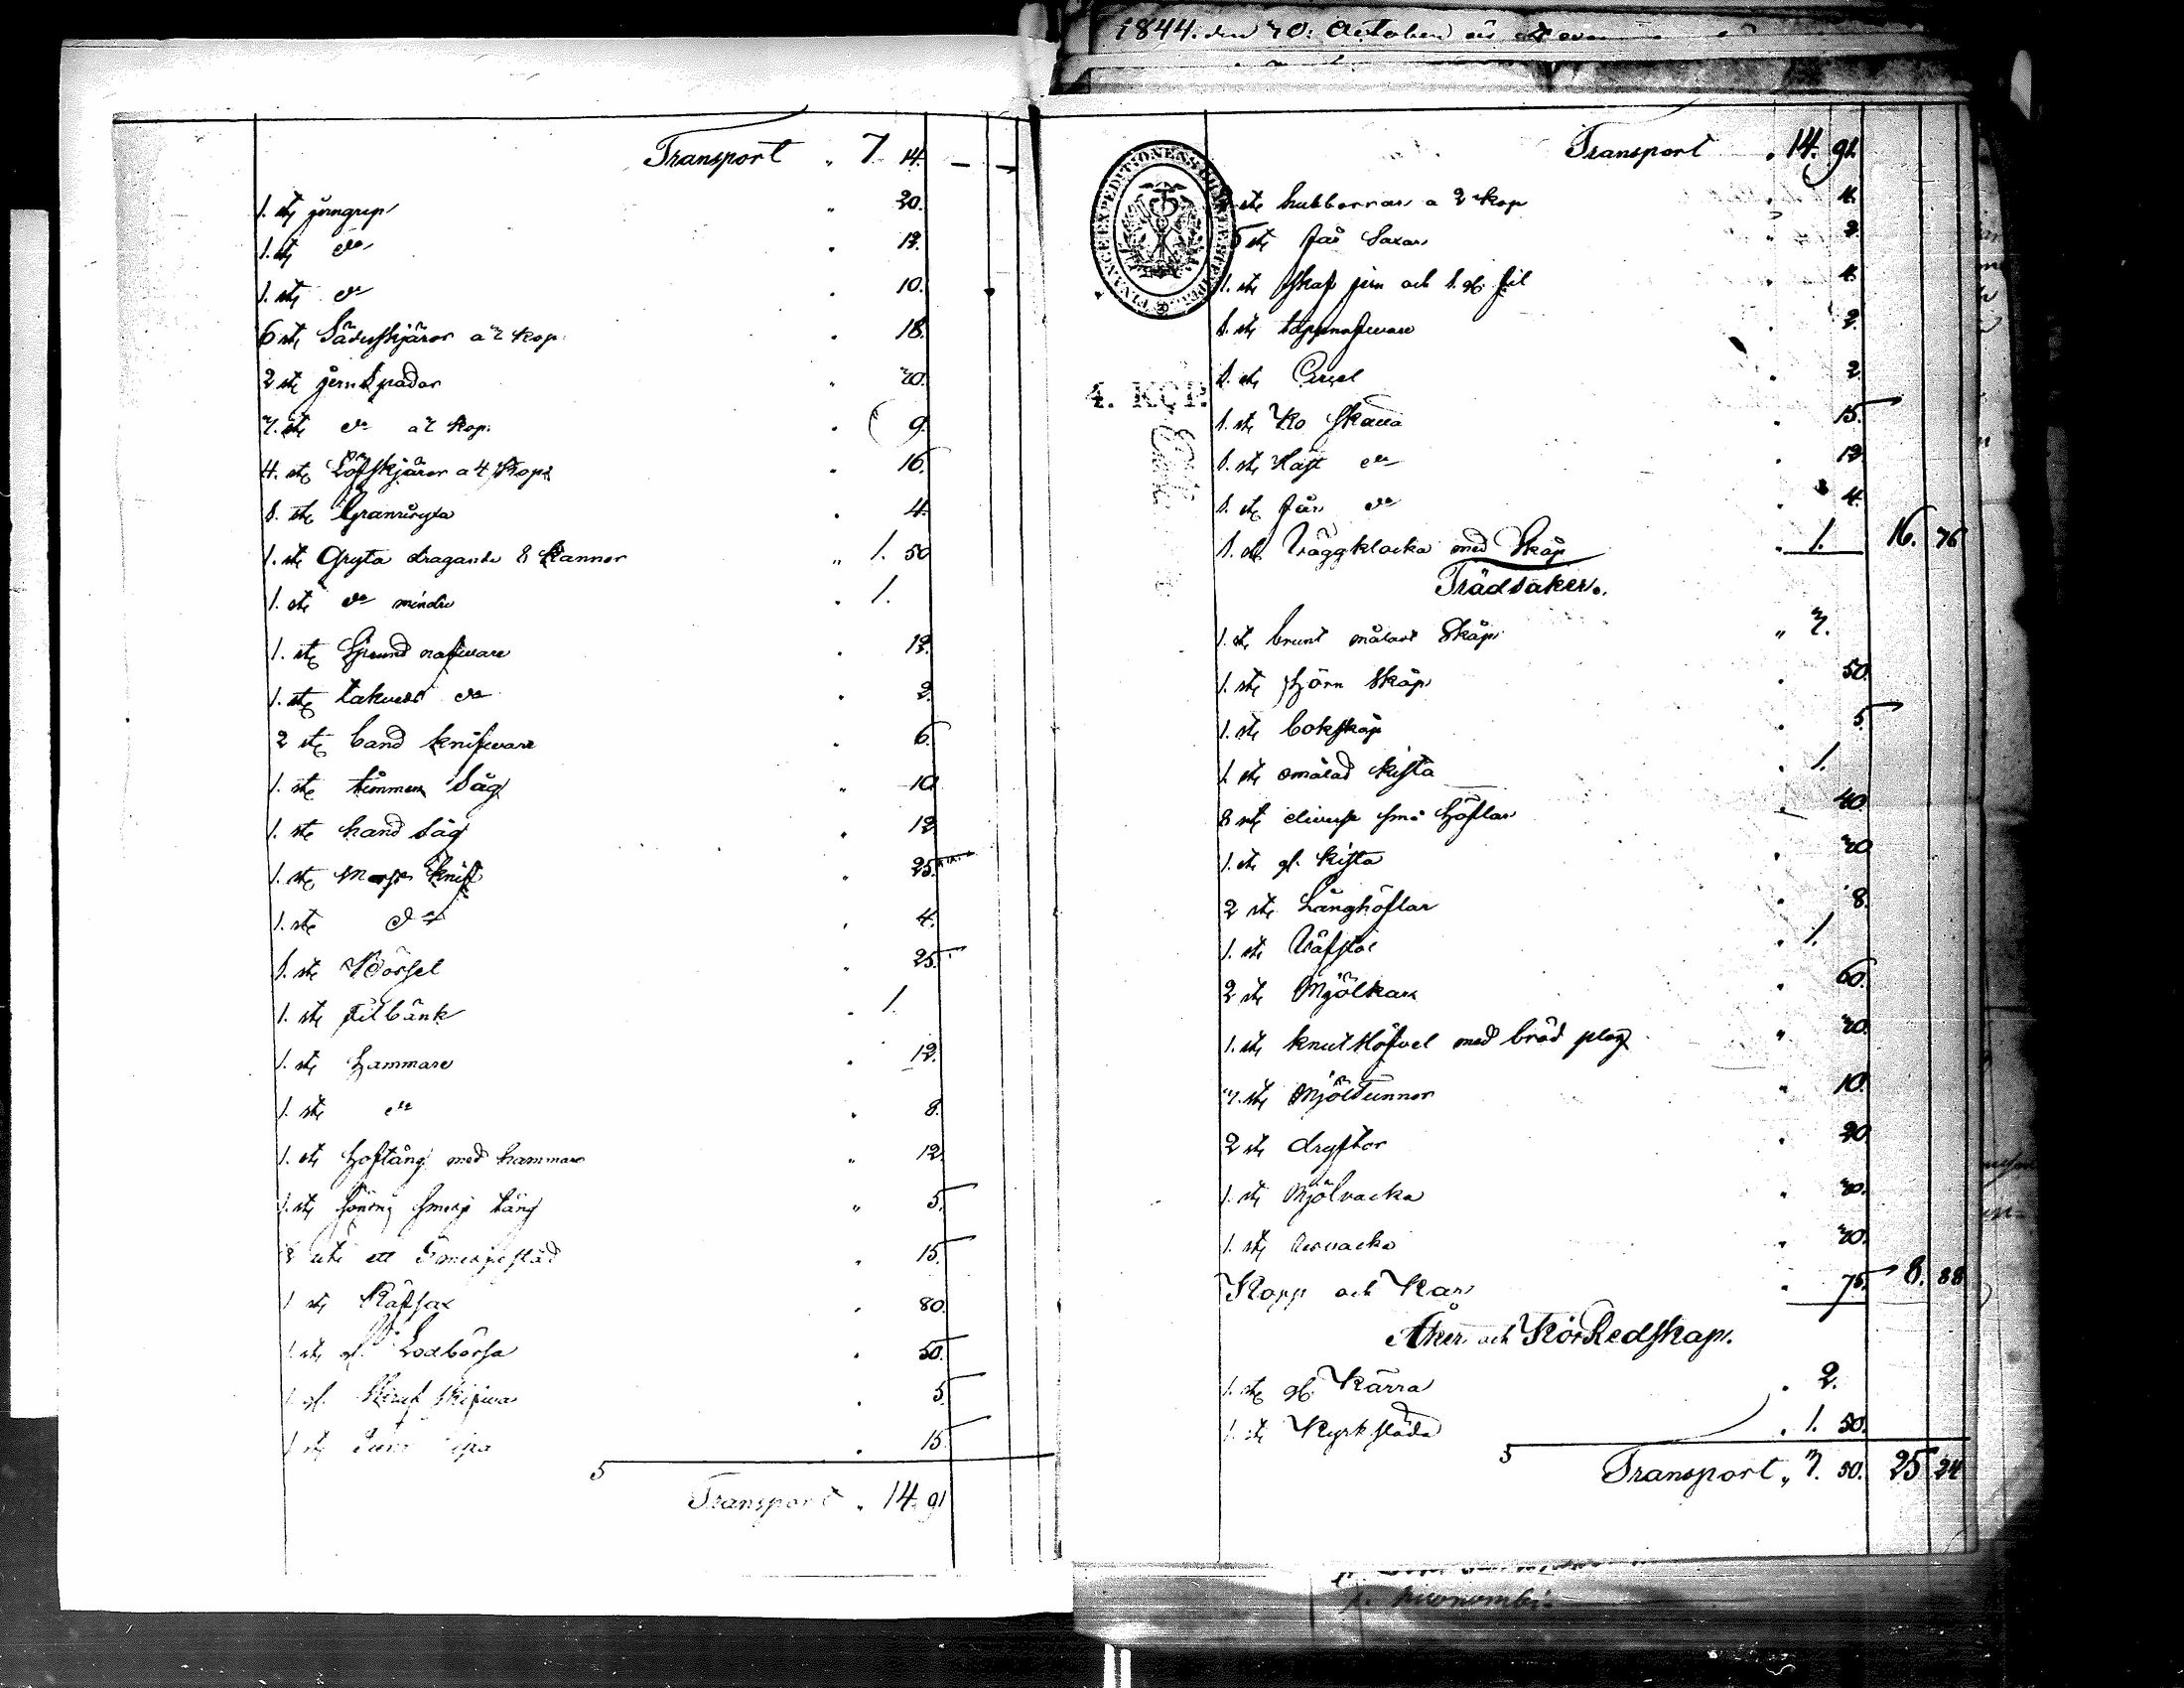 Transport " 7. 14. — —
1. st jerngrep " 20.
1. st do " 12.
1. st do " 10.
6 st Sädesskjäror a 3 kop. " 18.
2 st jernspadar " 30.
3. st do a 3 kop. " 9.
4. st Löfskjäror a 4 Kop. " 16.
1. st Gran " 4.
1. st Gryta dragande 8 Kannor " 1. 50
1. st do mindre " 1.
1. st Sprund nafware " 12.
1. st takved do " 2.
2 st band knifware " 6.
1. st timmer Såg " 10
1. st hand Såg " 12
1. st Knif " 25.
1. st do " 4.
1. st Börsel " 25.
1. st filbänk " 1.
1. st hammare " 12.
1. st do " 8.
1. st hoftång med hammare " 12.
1. st smed tång " 5.
st ett Smedjestäd " 15.
1 st Räfsax " 80.
1. st gl. Lodbössa " 50.
1. gl. " 5.
1 st " 15.
5
Transport " 14. 91
1844. den 30. October
Transport " 14. 91.
FINANCE EXPEDITIONENS
4. KOP.
st hubbornar a 2 kop " 4.
5 st får Saxar " 2.
1. st skaf jern och 1. gl. fil " 4.
1. st tappnafware " 2.
1. st Circel " 2
1. st Ko Skälla " 15.
1. st Häst do " 12
1. st får do " 4.
1. st Väggklocka med Skåp " 1. 16. 76
Trädsaker.
1. st brunt måladt Skåp " 3.
1. st hörn Skåp " 50.
1. st bokskåp " 5.
1. st omålad kista " 1.
8 st diverse små höflar " 40.
1. st gl. kista " 30
2 st Långhöflar " 8.
1. st Väfstol " 1.
2 st Mjölkar " 60.
1. st knut Höfvel med bräd plog " 30.
3. st Mjöltunnor " 10.
2 st dryftor " 20.
1. st Mjölvacka " 30.
1. st vacka " 30.
Kopp och Kar " 75. 8. 88
Åker och KörRedskap.
1. st gl. Kärra " 2.
1. st Kyrksläda " 1. 50.
5
Transport " 3. 50. 25 24